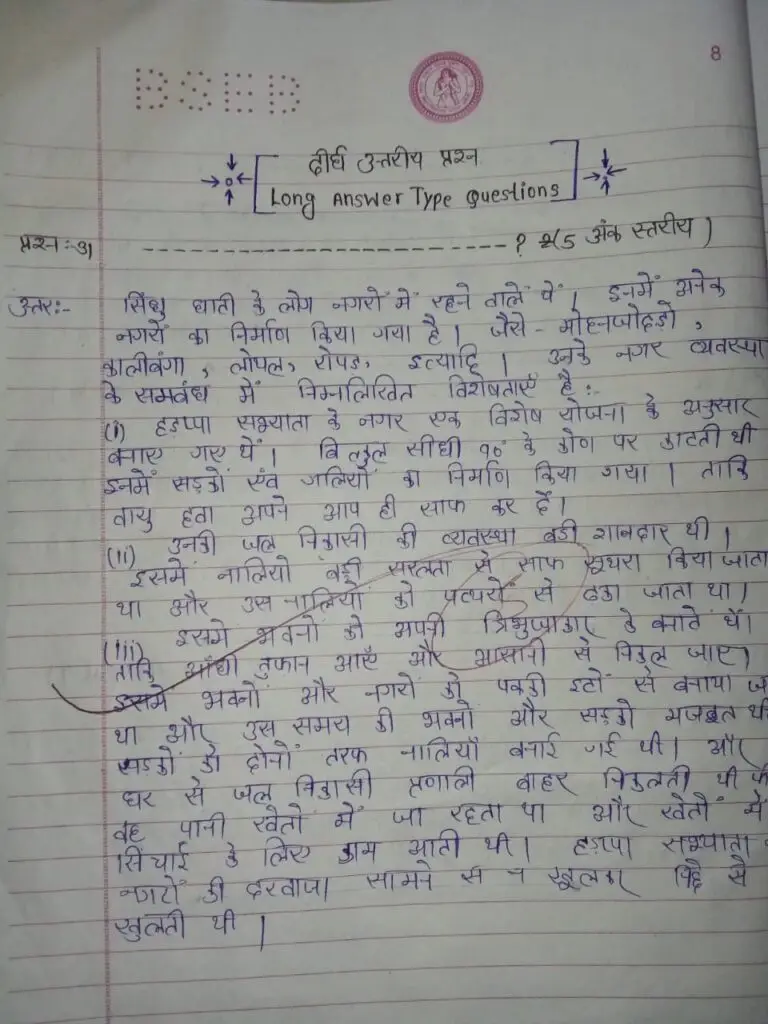 8
BSEB
दीर्घ उत्तरीय प्रश्न
Long Answer Type Questions
प्रश्न :-31 ------------------------- ? (5 अंक स्तरीय)
उत्तर:- सिंधु घाती के लोग नगरों में रहने वालें थें। इनमें अनेक
नगरों का निर्माण किया गया है। जैसे - मोहनजोदड़ो,
कालीबंगा, लोथल, रोपड़, इत्यादि। उनके नगर व्यवस्था
के समबंध में निम्नलिखित विशेषताएँ है:-
(i) हड़प्पा सभ्यता के नगर एक विशेष योजना के अनुसार
बनाए गए थें। बिल्कुल सीधी ९०° के कोण पर काटती थी
इनमें सड़कों एंव गलियों का निर्माण किया गया। ताकि
वायु हवा अपने आप ही साफ कर दें।
(ii) उनकी जल निकासी की व्यवस्था बडी शानदार थी।
इसमें नालियों बड़ी सरलता से साफ सुथरा किया जाता
था और उस नालियों को पत्थरों से ढका जाता था।
(iii) इसमे भवनों को अपनी त्रिभुजाकार के बनाते थें।
ताकि आँधी तुफान आएँ और आसानी से निकुल जाए।
इसमे भवनों और नगरों को पक्की इटों से बनाया जा
था और उस समय की भवनों और सड़को मजबूत थी
सड़कों के दोनों तरफ नालियाँ बनाई गई थी। और
घर से जल निकासी प्रणाली बाहर निकलती थी
वह पानी खेतों में जा रहता था और खेतों में
सिंचाई के लिए काम आती थी। हड़प्पा सभ्यता
नगरों की दरवाजा सामने से न खुलकर पिछे से
खुलती थी।